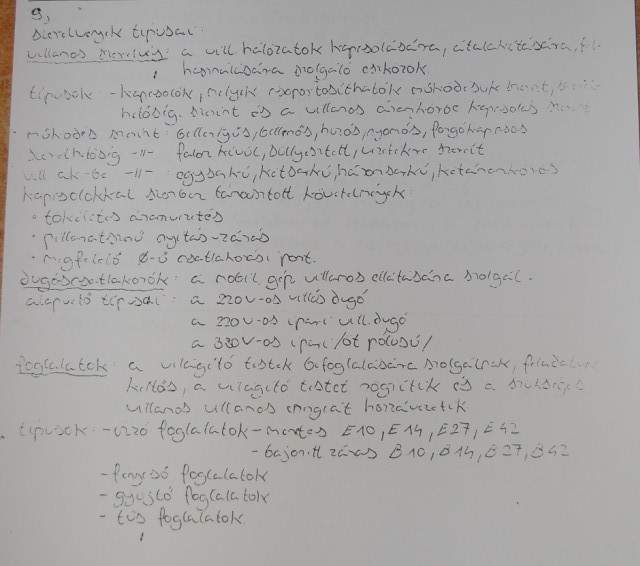 9,
Szerelvények típusai:
villanos szerelvény: a vill hálózatok kapcsolására, átalakítására, fel
használására szolgáló eszközök.
típusok: - kapcsolók, melyek csoportosíthatók működésük szerint, szerel
hetőség szerint és a villanos áramköröc kapcsolás szerint
működés szerint: billenőyűs, billenős, húzós, nyomós, forgókapcsos
szerelhetőség -11- falon kívül, süllyesztett, vezetékre szerelt
vill ák-be -11- egysarkú, kétsarkú, háromsarkú, kétáramkörös
kapcsolókkal szemben támasztott követelmények
• tökéletes áramvezetés
• pillanatszerű nyitás-zárás
• megfelelő Ø-ű csatlakozási pont.
dugóscsatlakozók: a mobil gép villanos ellátására szolgál.
alapvető típusai: a 220V-os villás dugó
a 220V-os ipari vill. dugó
a 380V-os ipari /öt pólusú/
foglalatok: a világító testek befoglalására szolgálnak, feladatuk
kettős, a világító testet rögzítik és a szükséges
villanos villanos energiát hozzávezetik.
típusok: - izzó foglalatok - menetes E10, E14, E27, E42
- bajonett záras B10, B14, B27, B42
- fénycső foglalatok
- gyújtó foglalatok
- tűs foglalatok